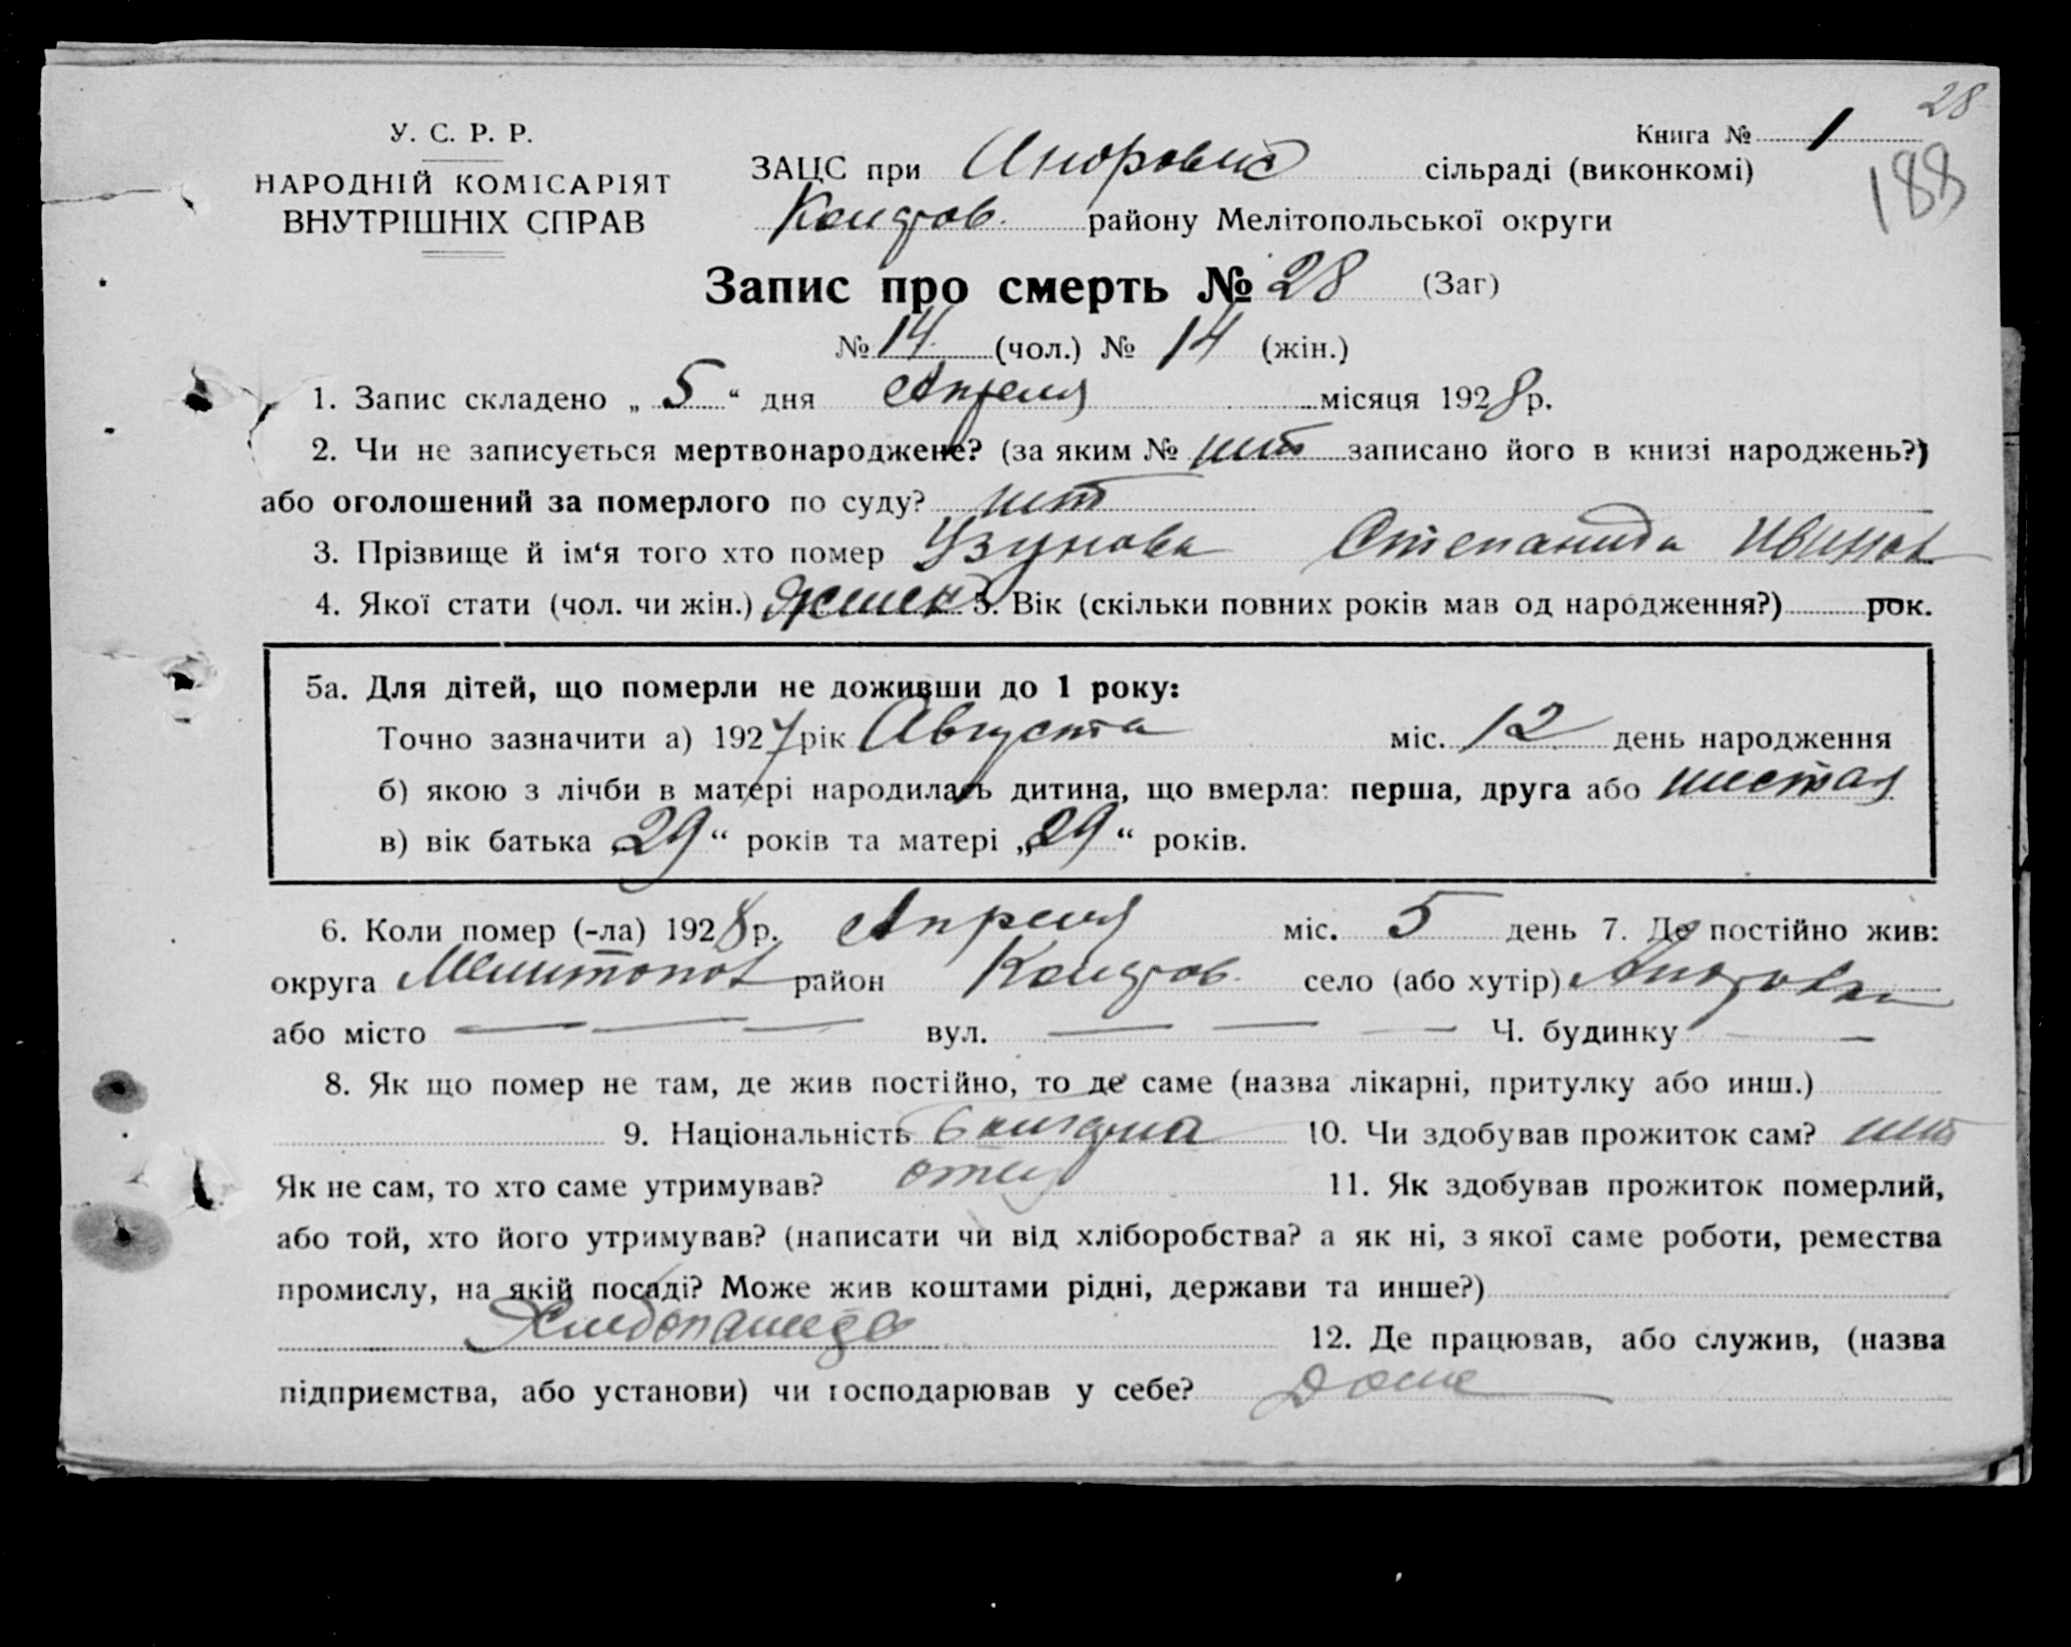 28
У. С. Р. Р.
НАРОДНІЙ КОМІСАРІЯТ
ВНУТРІШНІХ СПРАВ
Книга № 1
188
ЗАЦС при сільраді (виконкомі)
району Мелітопольської округи
Запис про смерть № 28 (Заг)
№ 14 (чол.) № 14 (жін.)
1. Запис складено „ 5 “ дня Апреля місяця 1928 р.
2. Чи не записується мертвонароджене? (за яким № нет записано його в книзі народжень?)
або оголошений за померлого по суду? нет
3. Прізвище й ім‘я того хто помер Узунова Степанида Иванов
4. Якої стати (чол. чи жін.) женск 5. Вік (скільки повних років мав од народження?) рок.
5а. Для дітей, що померли не доживши до 1 року:
Точно зазначити а) 1927 рік Августа міс. 12 день народження
б) якою з лічби в матері народилась дитина, що вмерла: перша, друга або шестая
в) вік батька „29“ років та матері „29“ років.
6. Коли помер (-ла) 1928 р. Апреля міс. 5 день 7. Де постійно жив:
округа Мелитопол район село (або хутір)
або місто — — — вул. — — — Ч. будинку — —
8. Як що помер не там, де жив постійно, то де саме (назва лікарні, притулку або инш.)
9. Національність 10. Чи здобував прожиток сам? нет
Як не сам, то хто саме утримував? отец 11. Як здобував прожиток померлий,
або той, хто його утримував? (написати чи від хліборобства? а як ні, з якої саме роботи, ремества
промислу, на якій посаді? Може жив коштами рідні, держави та инше?)
12. Де працював, або служив, (назва
підприємства, або установи) чи господарював у себе? Дома